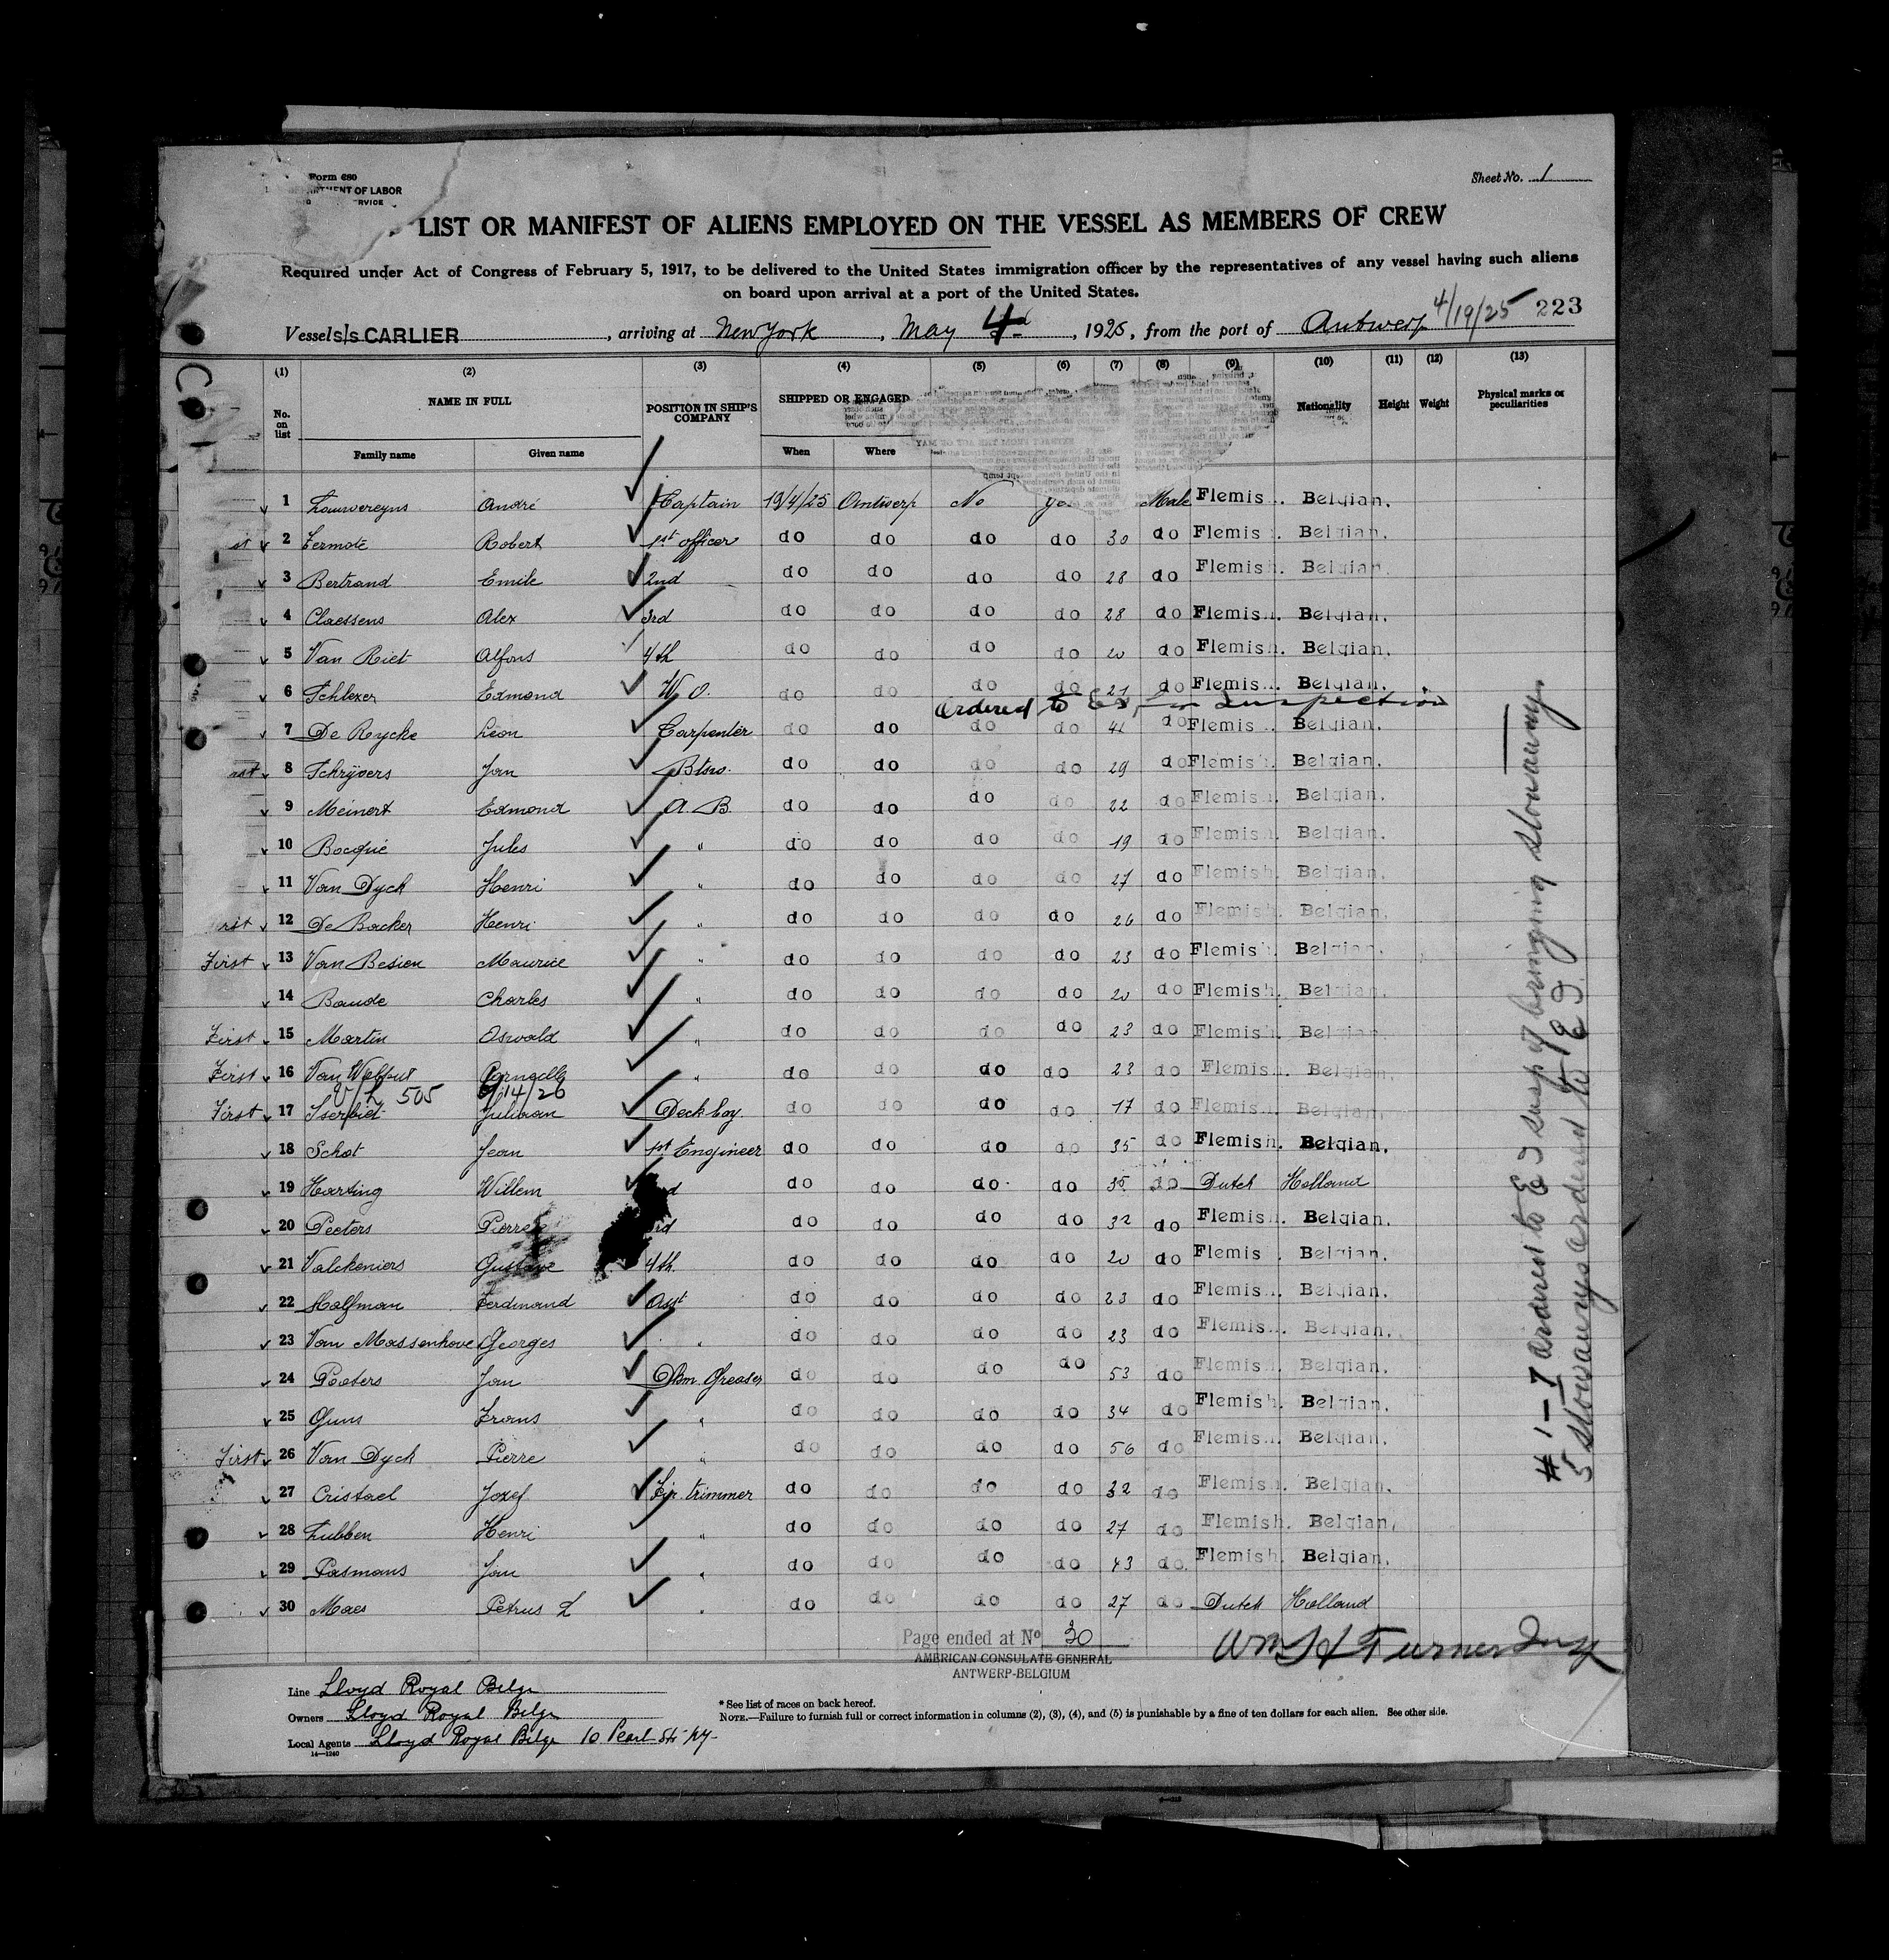 Form 680
DEPARTMENT OF LABOR
Sheet No. 1
LIST OR MANIFEST OF ALIENS EMPLOYED ON THE VESSEL AS MEMBERS OF CREW
Required under Act of Congress of February 5, 1917, to be delivered to the United States immigration officer by the representatives of any vessel having such aliens
on board upon arrival at a port of the United States.
4/19/25 223
Vessel s/s CARLIER, arriving at New York, May 4, 1925, from the port of Antwerp
(1) (2) (3) (4) (5) (6) (7) (8) (9) (10) (11) (12) (13)
No. on list NAME IN FULL POSITION IN SHIP'S COMPANY SHIPPED OR ENGAGED Nationality Height Weight Physical marks or peculiarities
Family name Given name When Where
1 André Captain 19/4/25 Antwerp No Male Flemis Belgian.
2 Robert 1st officer do do do do 30 do Flemis Belgian.
3 Bertrand Emile 2nd do do do do 28 do Flemish Belgian.
4 Claessens Alex 3rd do do do do 28 do Flemis Belgian.
5 Van Riet Alfons 4th do do do do 20 do Flemish. Belgian.
6 Edmond W. O. do do do do 21 do Flemis Belgian.
Ordered to for Inspection
7 De Rycke Léon Carpenter do do do do 41 do Flemis Belgian.
8 Schrijvers Jan Btsw. do do do do 29 do Flemish. Belgian.
9 Meinert Edmond A. B. do do do do 22 do Flemish. Belgian.
10 Bocqué Jules " do do do do 19 do Flemish. Belgian.
11 Van Dyck Henri " do do do do 27 do Flemish. Belgian.
12 De Backer Henri " do do do do 26 do Flemish. Belgian.
First 13 Van Besien Maurice " do do do do 23 do Flemish. Belgian.
14 Baude Charles " do do do do 20 do Flemish. Belgian.
First 15 Martin Oswald " do do do do 23 do Flemish. Belgian.
First 16 Van " do do do do 23 do Flemish. Belgian.
505 14/26
First 17 Juliaan Deck boy. do do do do 17 do Flemish. Belgian.
18 Schot Jean 1st Engineer do do do do 35 do Flemish. Belgian.
19 Harting Willem do do do do 35 do Dutch Holland
20 Peeters Pierre do do do do 32 do Flemis Belgian.
21 Valckeniers Gustave 4th. do do do do 20 do Flemis Belgian.
22 Halfman Ferdinand Asst do do do do 23 do Flemish. Belgian.
23 Van Massenhove Georges " do do do do 23 do Flemis Belgian.
24 Peeters Jan Dkm. Greaser do do do do 53 do Flemish. Belgian.
25 Guns Frans " do do do do 34 do Flemish. Belgian.
First 26 Van Dyck Pierre " do do do do 56 do Flemish. Belgian.
27 Cristael Jozef Fir. trimmer do do do do 32 do Flemish. Belgian.
28 Lubben Henri " do do do do 27 do Flemish. Belgian.
29 Pasmans Jan " do do do do 43 do. Flemish. Belgian.
30 Maes Petrus L " do do do do 27 do Dutch Holland
# 1 - 7 ordered to E I susp of bringing stowaway.
5 stowaways ordered to E I
Page ended at No 30
AMERICAN CONSULATE GENERAL
ANTWERP-BELGIUM
Wm H Turner
Line Lloyd Royal Belge
Owners Lloyd Royal Belge
Local Agents Lloyd Royal Belge 10 Pearl Str NY
14—1240
* See list of races on back hereof.
NOTE.—Failure to furnish full or correct information in columns (2), (3), (4), and (5) is punishable by a fine of ten dollars for each alien. See other side.